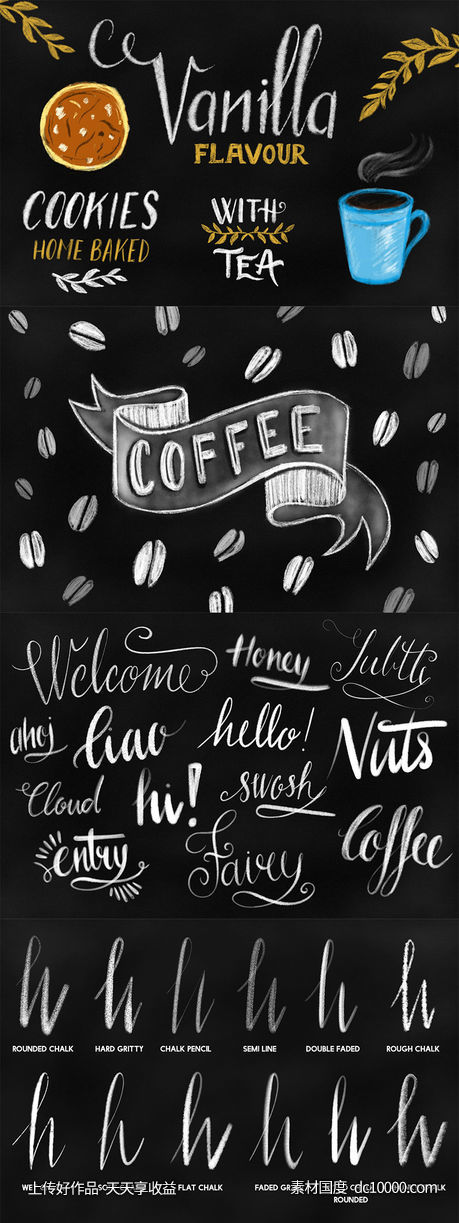 Vanilla
FLAVOUR
COOKIES
HOME BAKED
WITH
TEA
COFFEE
Welcome
Honey
Subtle
ahoj
Ciao
hello!
Nuts
Cloud
hi!
swosh
entry
Fairy
Coffee
h h h h h h
ROUNDED CHALK
HARD GRITTY
CHALK PENCIL
SEMI LINE
DOUBLE FADED
ROUGH CHALK
h h h h h h
FLAT CHALK
ROUNDED
上传好作品-天天享收益
素材国度 dc10000.com